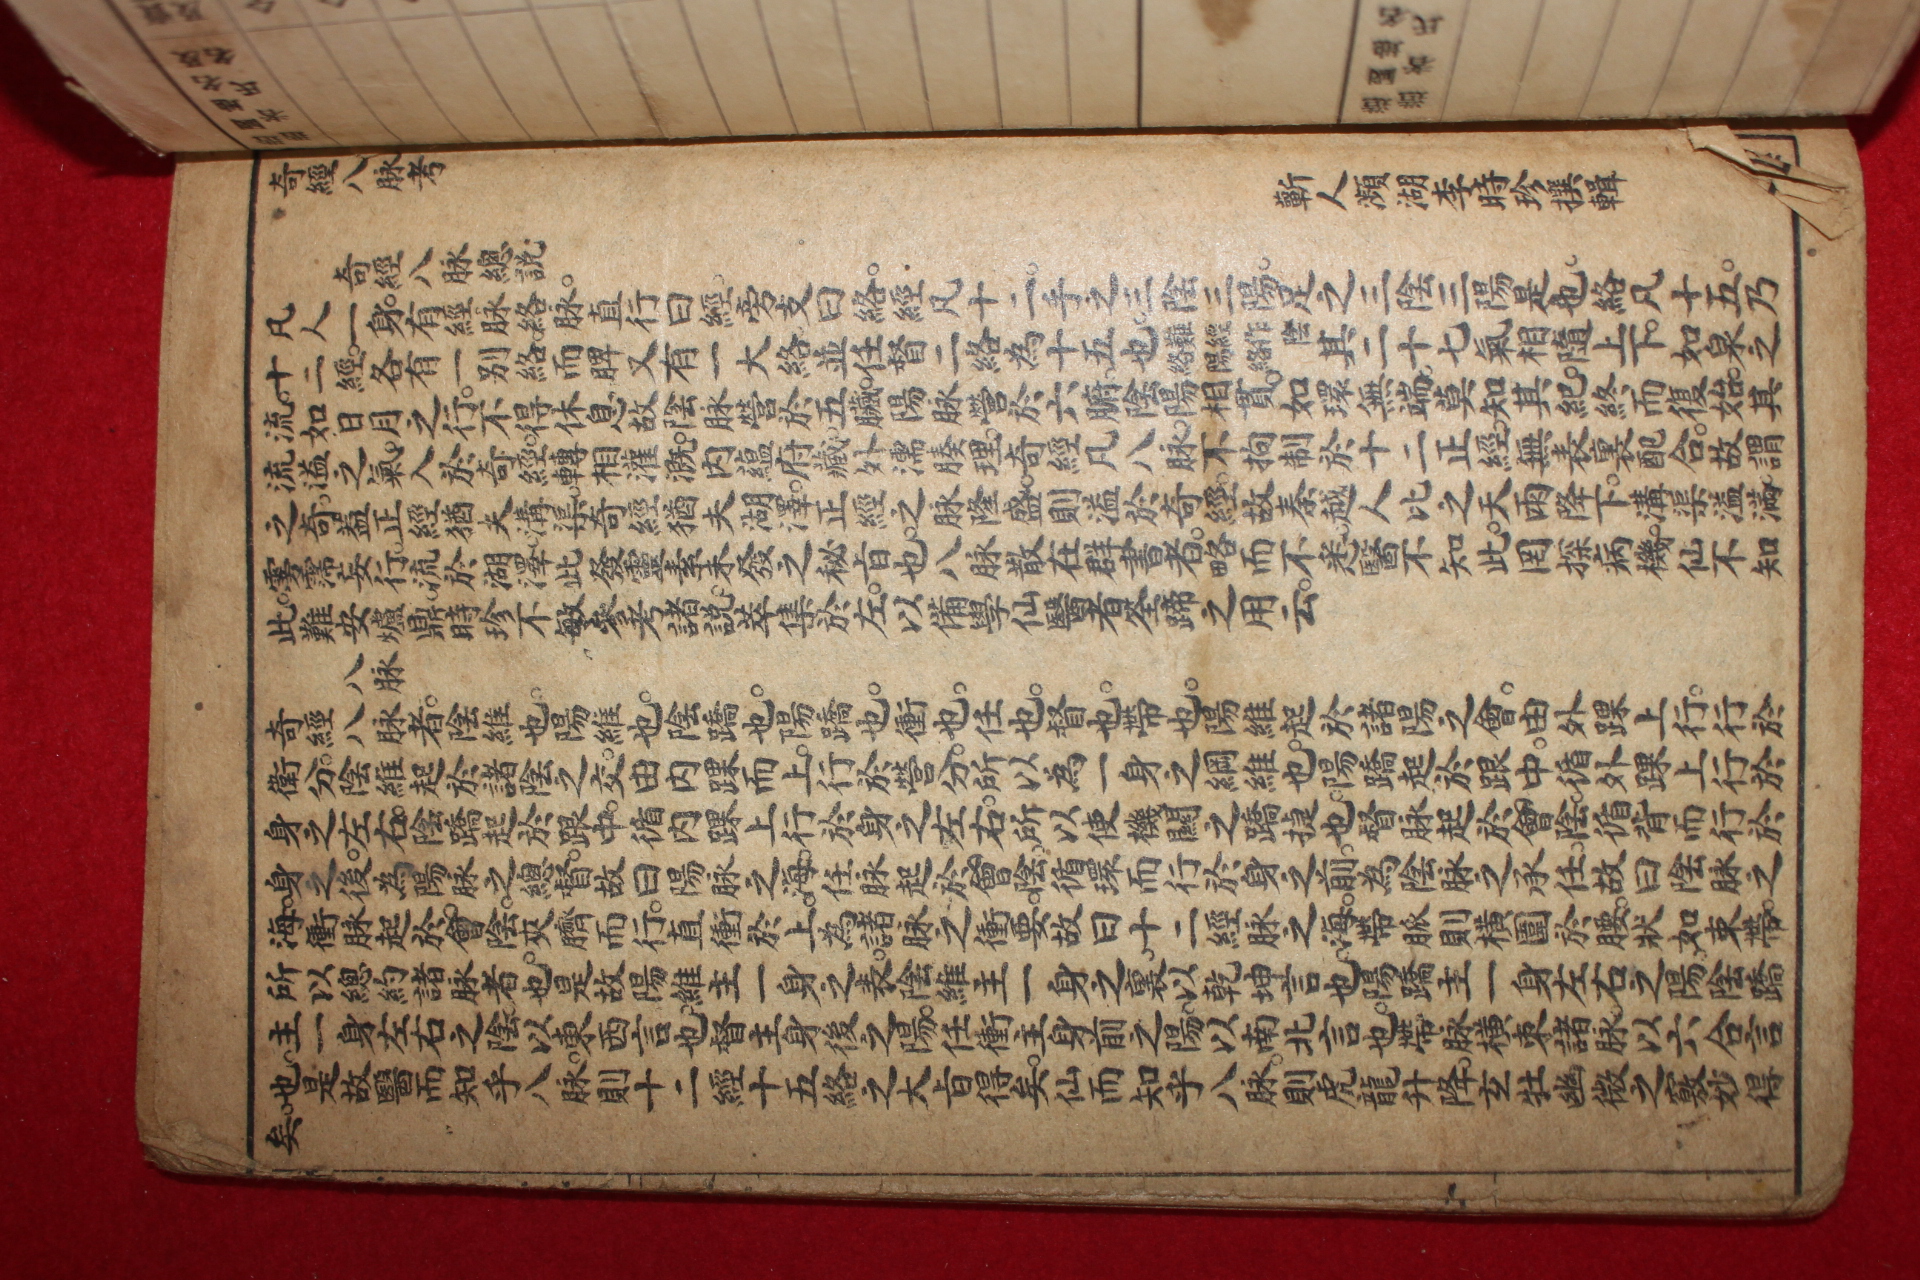 奇經八脉考
蘄人瀕湖李時珍撰輯
奇經八脉總說
凡人一身。有經脉絡脉。直行曰經。旁支曰絡。經凡十二。手之三陰三陽。足之三陰三陽是也。絡凡十五。乃
十二經。各有一別絡。而脾又有一大絡。並任督二絡。為十五也。難經作陰絡陽絡其二十七氣。相隨上下。如泉之
流。如日月之行。不得休息。故陰脉營於五臟。陽脉營於六腑。陰陽相貫。如環無端。莫知其紀。終而復始。其
流溢之氣。入於奇經。轉相灌溉。內蘊府藏。外濡腠理。奇經凡八脉。不拘制於十二正經。無表裏配合。故謂
之奇。蓋正經猶夫溝渠。奇經猶夫湖澤。正經之脉隆盛。則溢於奇經。故秦越人比之天雨降下。溝渠溢滿。
霶霈妄行。流於湖澤。此發靈素未發之秘旨也。八脉散在群書者。略而不悉。醫不知此。罔探病機。仙不知
此。難安爐鼎。時珍不敏。參考諸說。萃集於左。以備學仙醫者筌蹄之用云。
八脉
奇經八脉者。陰維也。陽維也。陰蹻也。陽蹻也。衝也。任也。督也。帶也。陽維起於諸陽之會。由外踝上行。行於
衛分。陰維起於諸陰之交。由內踝而上。行於營分。所以為一身之綱維也。陽蹻起於跟中。循外踝上行於
身之左右。陰蹻起於跟中。循內踝上行於身之左右。所以使機關之蹻捷也。督脉起於會陰。循背而行於
身之後。為陽脉之總督。故曰陽脉之海。任脉起於會陰。循腹而行於身之前。為陰脉之承任。故曰陰脉之
海。衝脉起於會陰。夾臍而行。直衝於上。為諸脉之衝要。故曰十二經脉之海。帶脉則橫圍於腰。狀如束帶。
所以總約諸脉者也。是故陽維主一身之表。陰維主一身之裏。以乾坤言也。陽蹻主一身左右之陽。陰蹻
主一身左右之陰。以東西言也。督主身後之陽。任衝主身前之陽。以南北言也。帶脉橫束諸脉。以六合言
也。是故醫而知乎八脉。則十二經十五絡之大旨得矣。仙而知乎八脉。則虎龍升降玄牡幽微之竅妙得
矣。